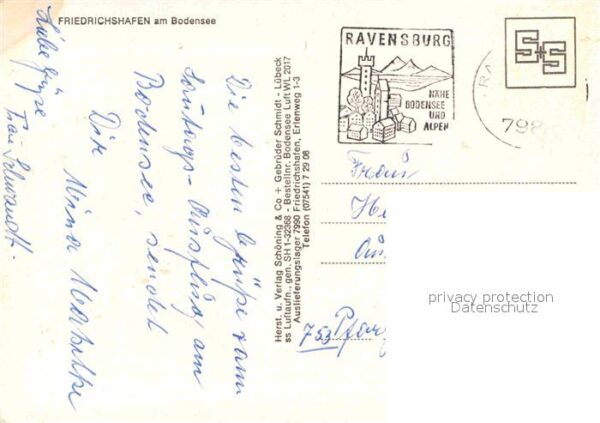 FRIEDRICHSHAFEN am Bodensee
Die besten Grüße vom
Sonntags-Ausflug am
Bodensee, sendet
Dir
Liebe Grüße
Herst. u. Verlag Schöning & Co + Gebrüder Schmidt - Lübeck
ss Luftaufn., gen. SH 1-32368 - Bestellnr. Bodensee Luft WL 2017
Auslieferungslager 7990 Friedrichshafen, Erlenweg 1-3
Telefon (07541) 7 29 08
RAVENSBURG
NÄHE
BODENSEE
UND
ALPEN
S+S
RA
798
Frau
He
753 Pforz
privacy protection
Datenschutz